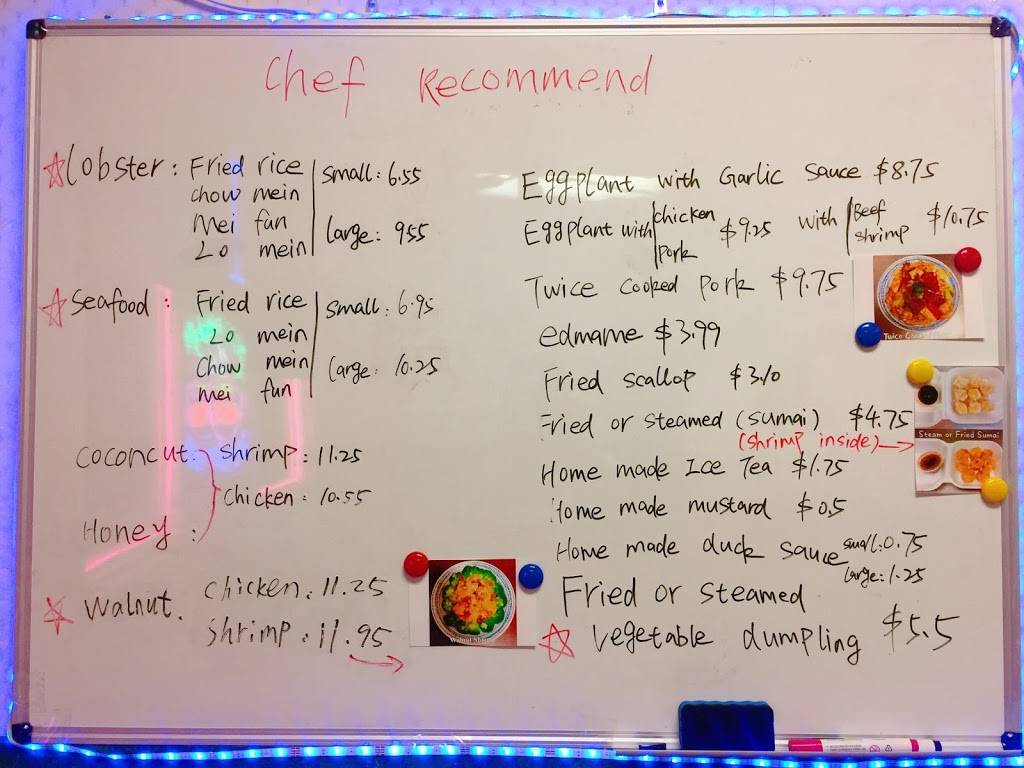 Chef Recommend
Lobster: Fried rice small: 6.55
chow mein
Mei fun large: 955
Lo mein
Seafood: Fried rice small: 6.95
Lo mein
chow mein large: 10.25
mei fun
coconcut: shrimp: 11.25
chicken: 10.55
Honey:
walnut. chicken: 11.25
shrimp: 11.95
Eggplant with Garlic sauce $8.75
Eggplant with chicken pork $9.25 with Beef shrimp $10.75
Twice cooked pork $9.75
edmame $3.99
Fried scallop $3.10
Fried or steamed (sumai) $4.75
(shrimp inside)
Steam or Fried Sumai
Home made Ice Tea $1.75
Home made mustard $0.5
Home made duck sauce small:0.75
large:1.25
Fried or steamed
vegetable dumpling $5.5